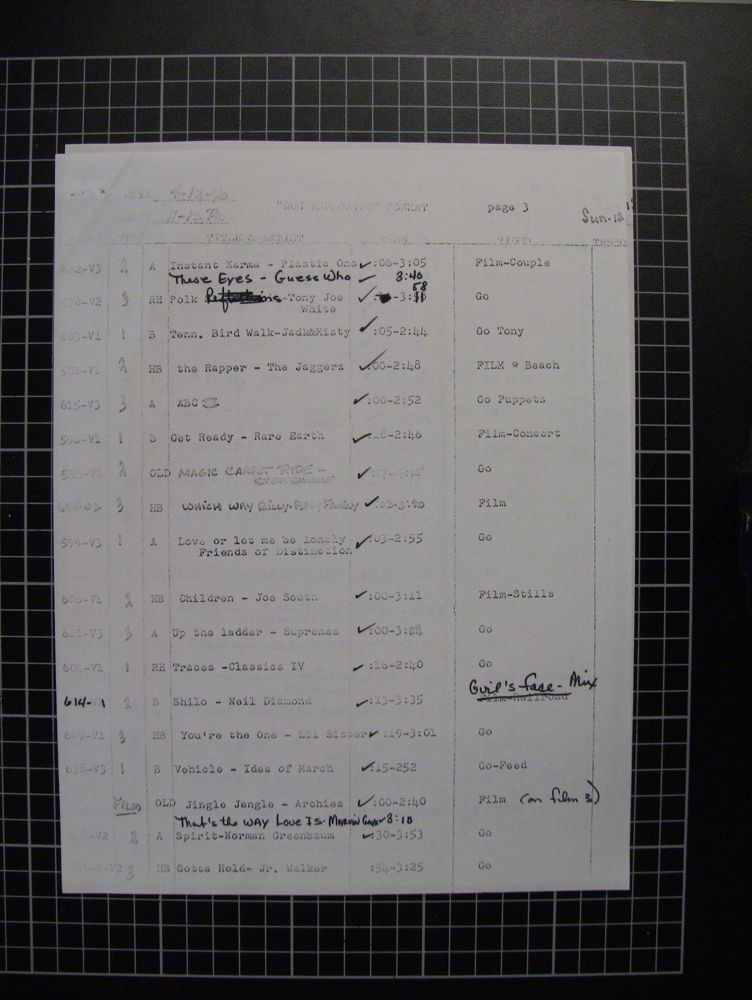 DATA 4-12-70
11-12 P.M. FORMAT page 3 Sun. 12
TITLE & ARTIST VIDEO TEMPO
622-V3 2 A Instant Karma - Plastic Ono ✓ :06-3:05 Film-Couple
These Eyes - Guess Who ✓ 3:40
570-V2 3 RH Polk -Tony Joe White ✓ -3: 58 Go
603-V1 1 B Tenn. Bird Walk-Jack&Misty ✓ :05-2:44 Go Tony
581-V1 2 HB the Rapper - The Jaggerz ✓ :00-2:48 FILM @ Beach
615-V3 3 A ABC ✓ :00-2:52 Go Puppets
596-V1 1 B Get Ready - Rare Earth ✓ -2:46 Film-Concert
2 OLD MAGIC CARPET RIDE - ✓ Go
STEPPENWOLF
3 HB WHICH WAY Family ✓ Film
599-V3 1 A Love or let me be lonely ✓ :03-2:55 Go
Friends of Distinction
608-V1 2 HB Children - Joe South ✓ :00-3:11 Film-Stills
611-V3 3 A Up the ladder - Supremes ✓ :00-3: Go
604-V1 1 RH Traces -Classics IV ✓ :16-2:40 Go
Girl's face - Mix
614-V1 2 B Shilo - Neil Diamond ✓ :13-3:35 Film-Railroad
609-V1 3 HB You're the One - Lil Sister ✓ :19-3:01 Go
638-V3 1 B Vehicle - Ides of March ✓ :15-252 Go-Feed
FILM OLD Jingle Jangle - Archies ✓ :00-2:40 Film (on film 3)
That's the WAY Love Is - MARVIN Gaye ✓ 3:10
-V2 2 A Spirit-Norman Greenbaum ✓ :30-3:53 Go
-V2 3 HB Gotta Hold- Jr. Walker :54-3:25 Go